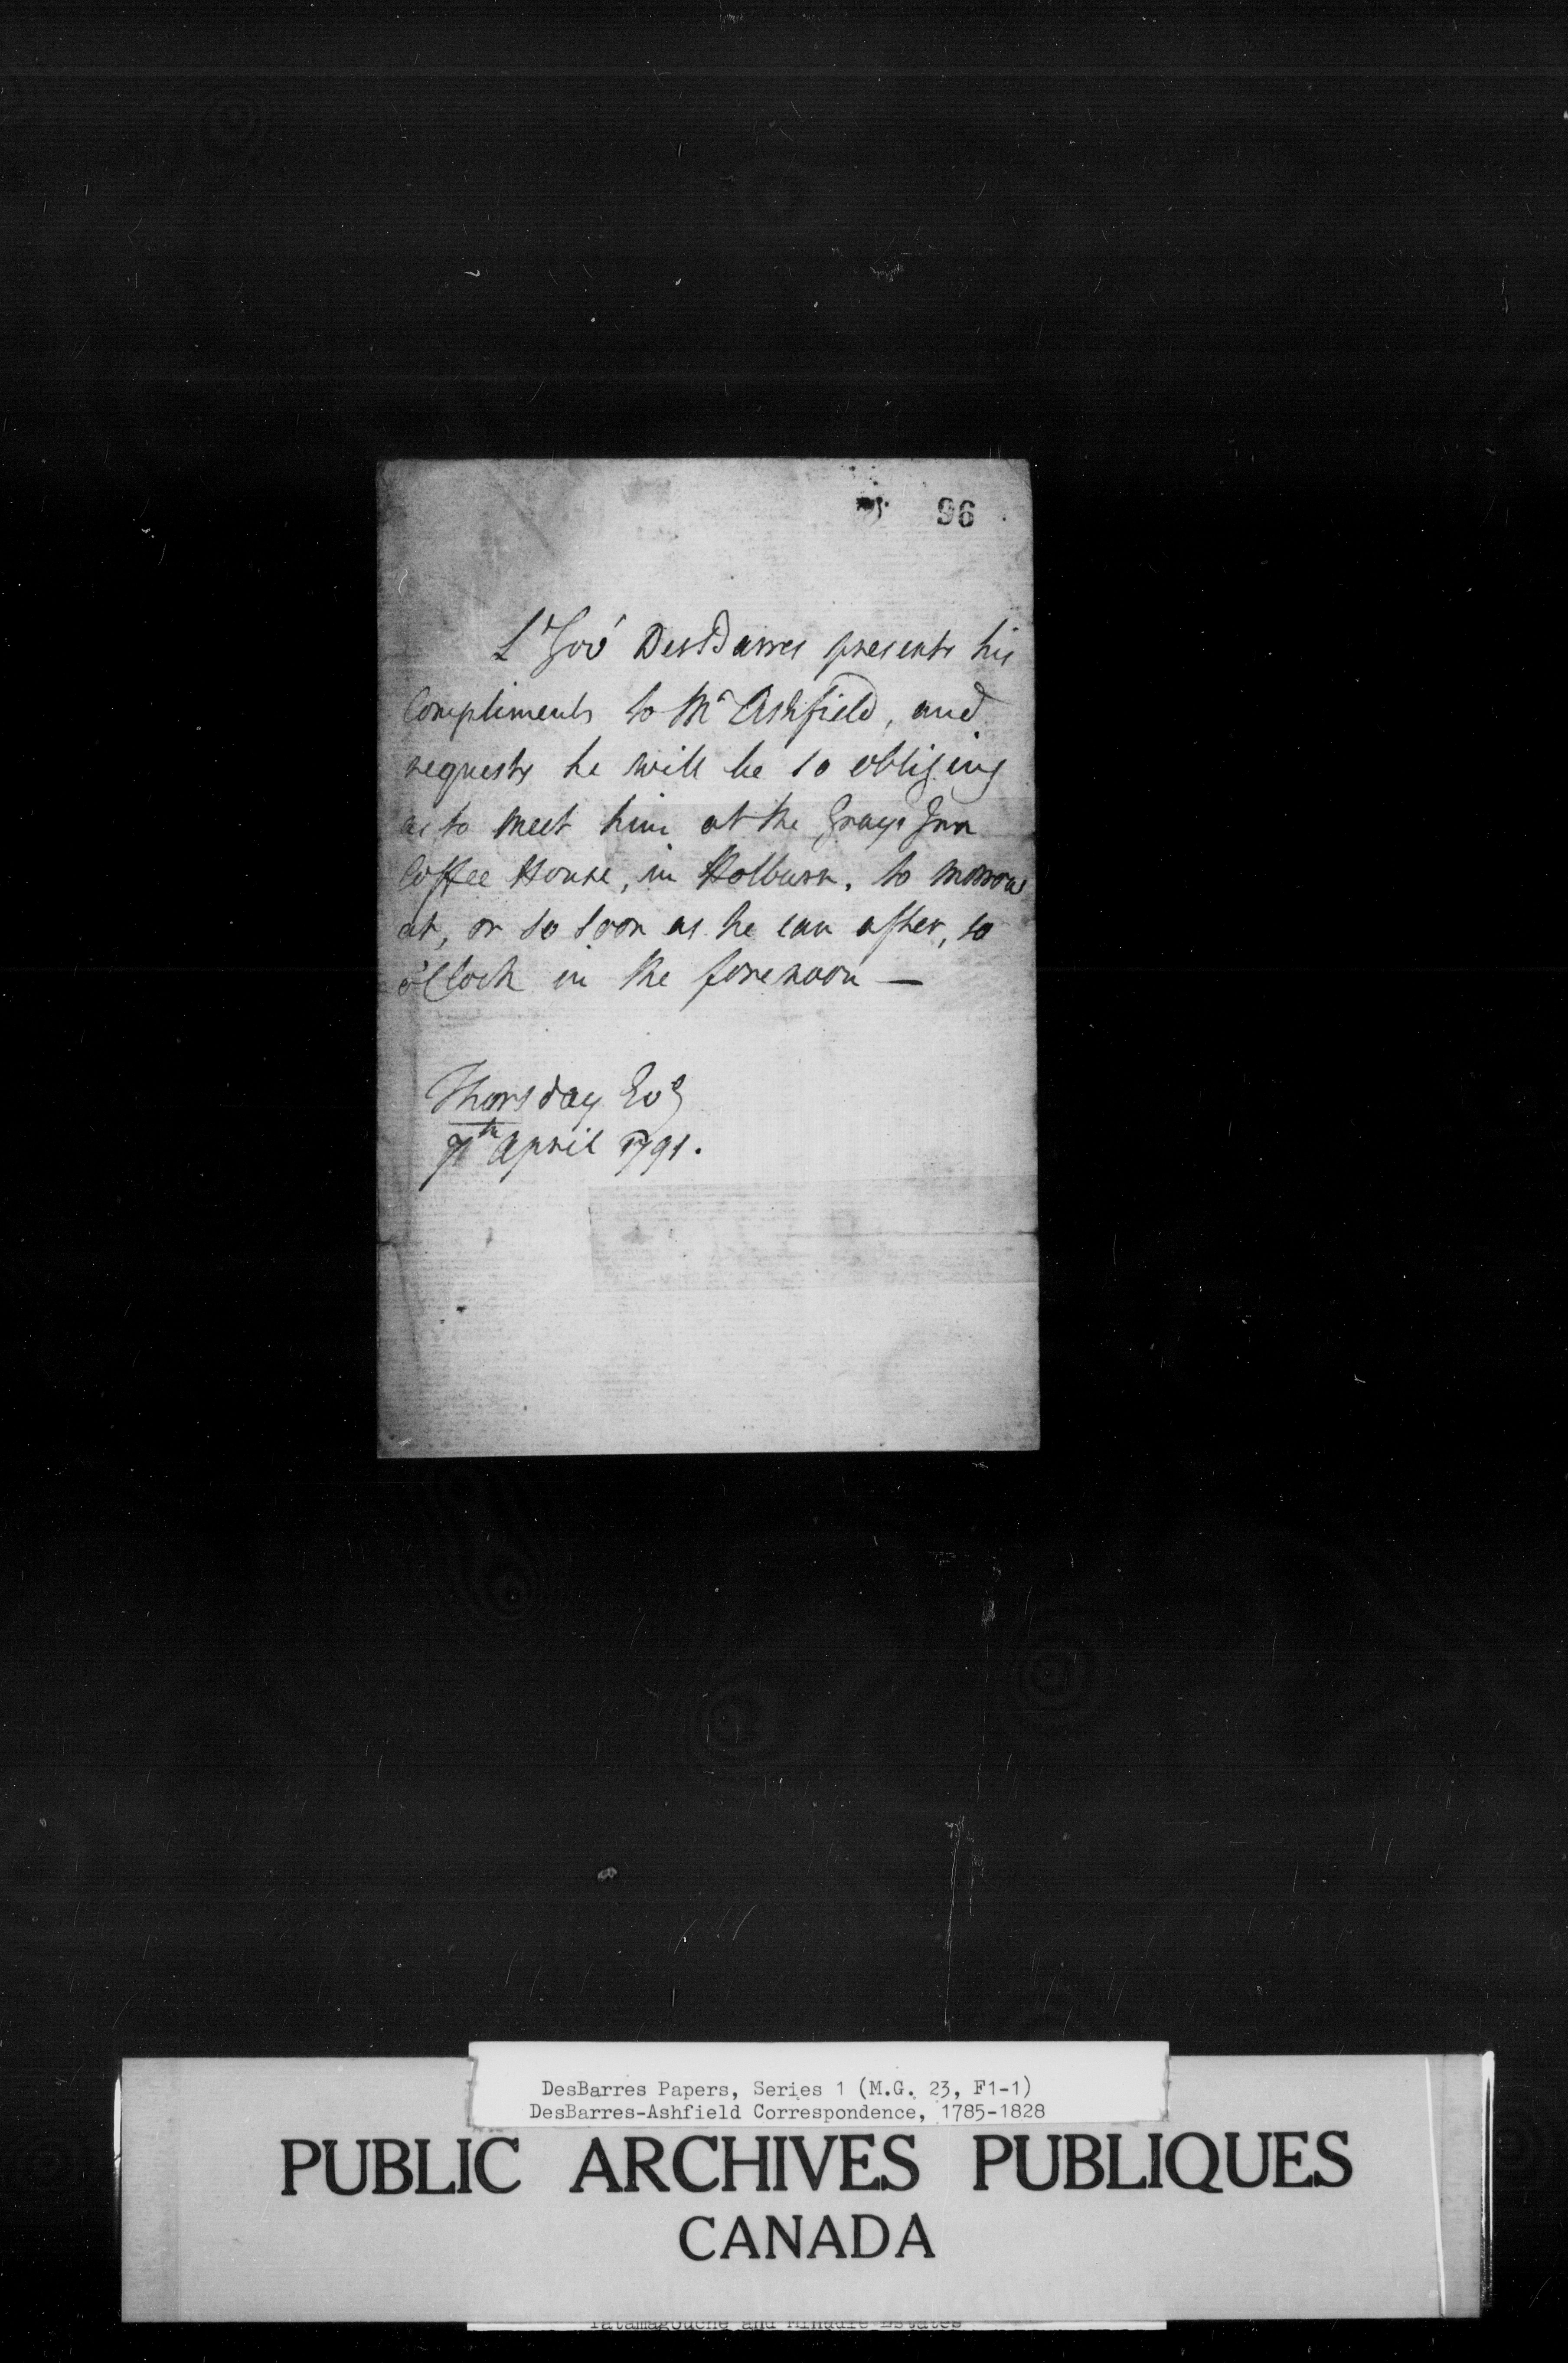 96
Lt Govr DesBarres presents his
Compliments to Mr Ashfield, and
requests he will be so obliging
as to meet him at the Grays Inn
Coffee House, in Holburn, to morrow
at, or so soon as he can after, 10
o'Clock in the forenoon —
Thorsday Evg
7th April 1791.
DesBarres Papers, Series 1 (M.G. 23, F1-1)
DesBarres-Ashfield Correspondence, 1785-1828
PUBLIC ARCHIVES PUBLIQUES
CANADA
Tatamagouche and Minudie Estates